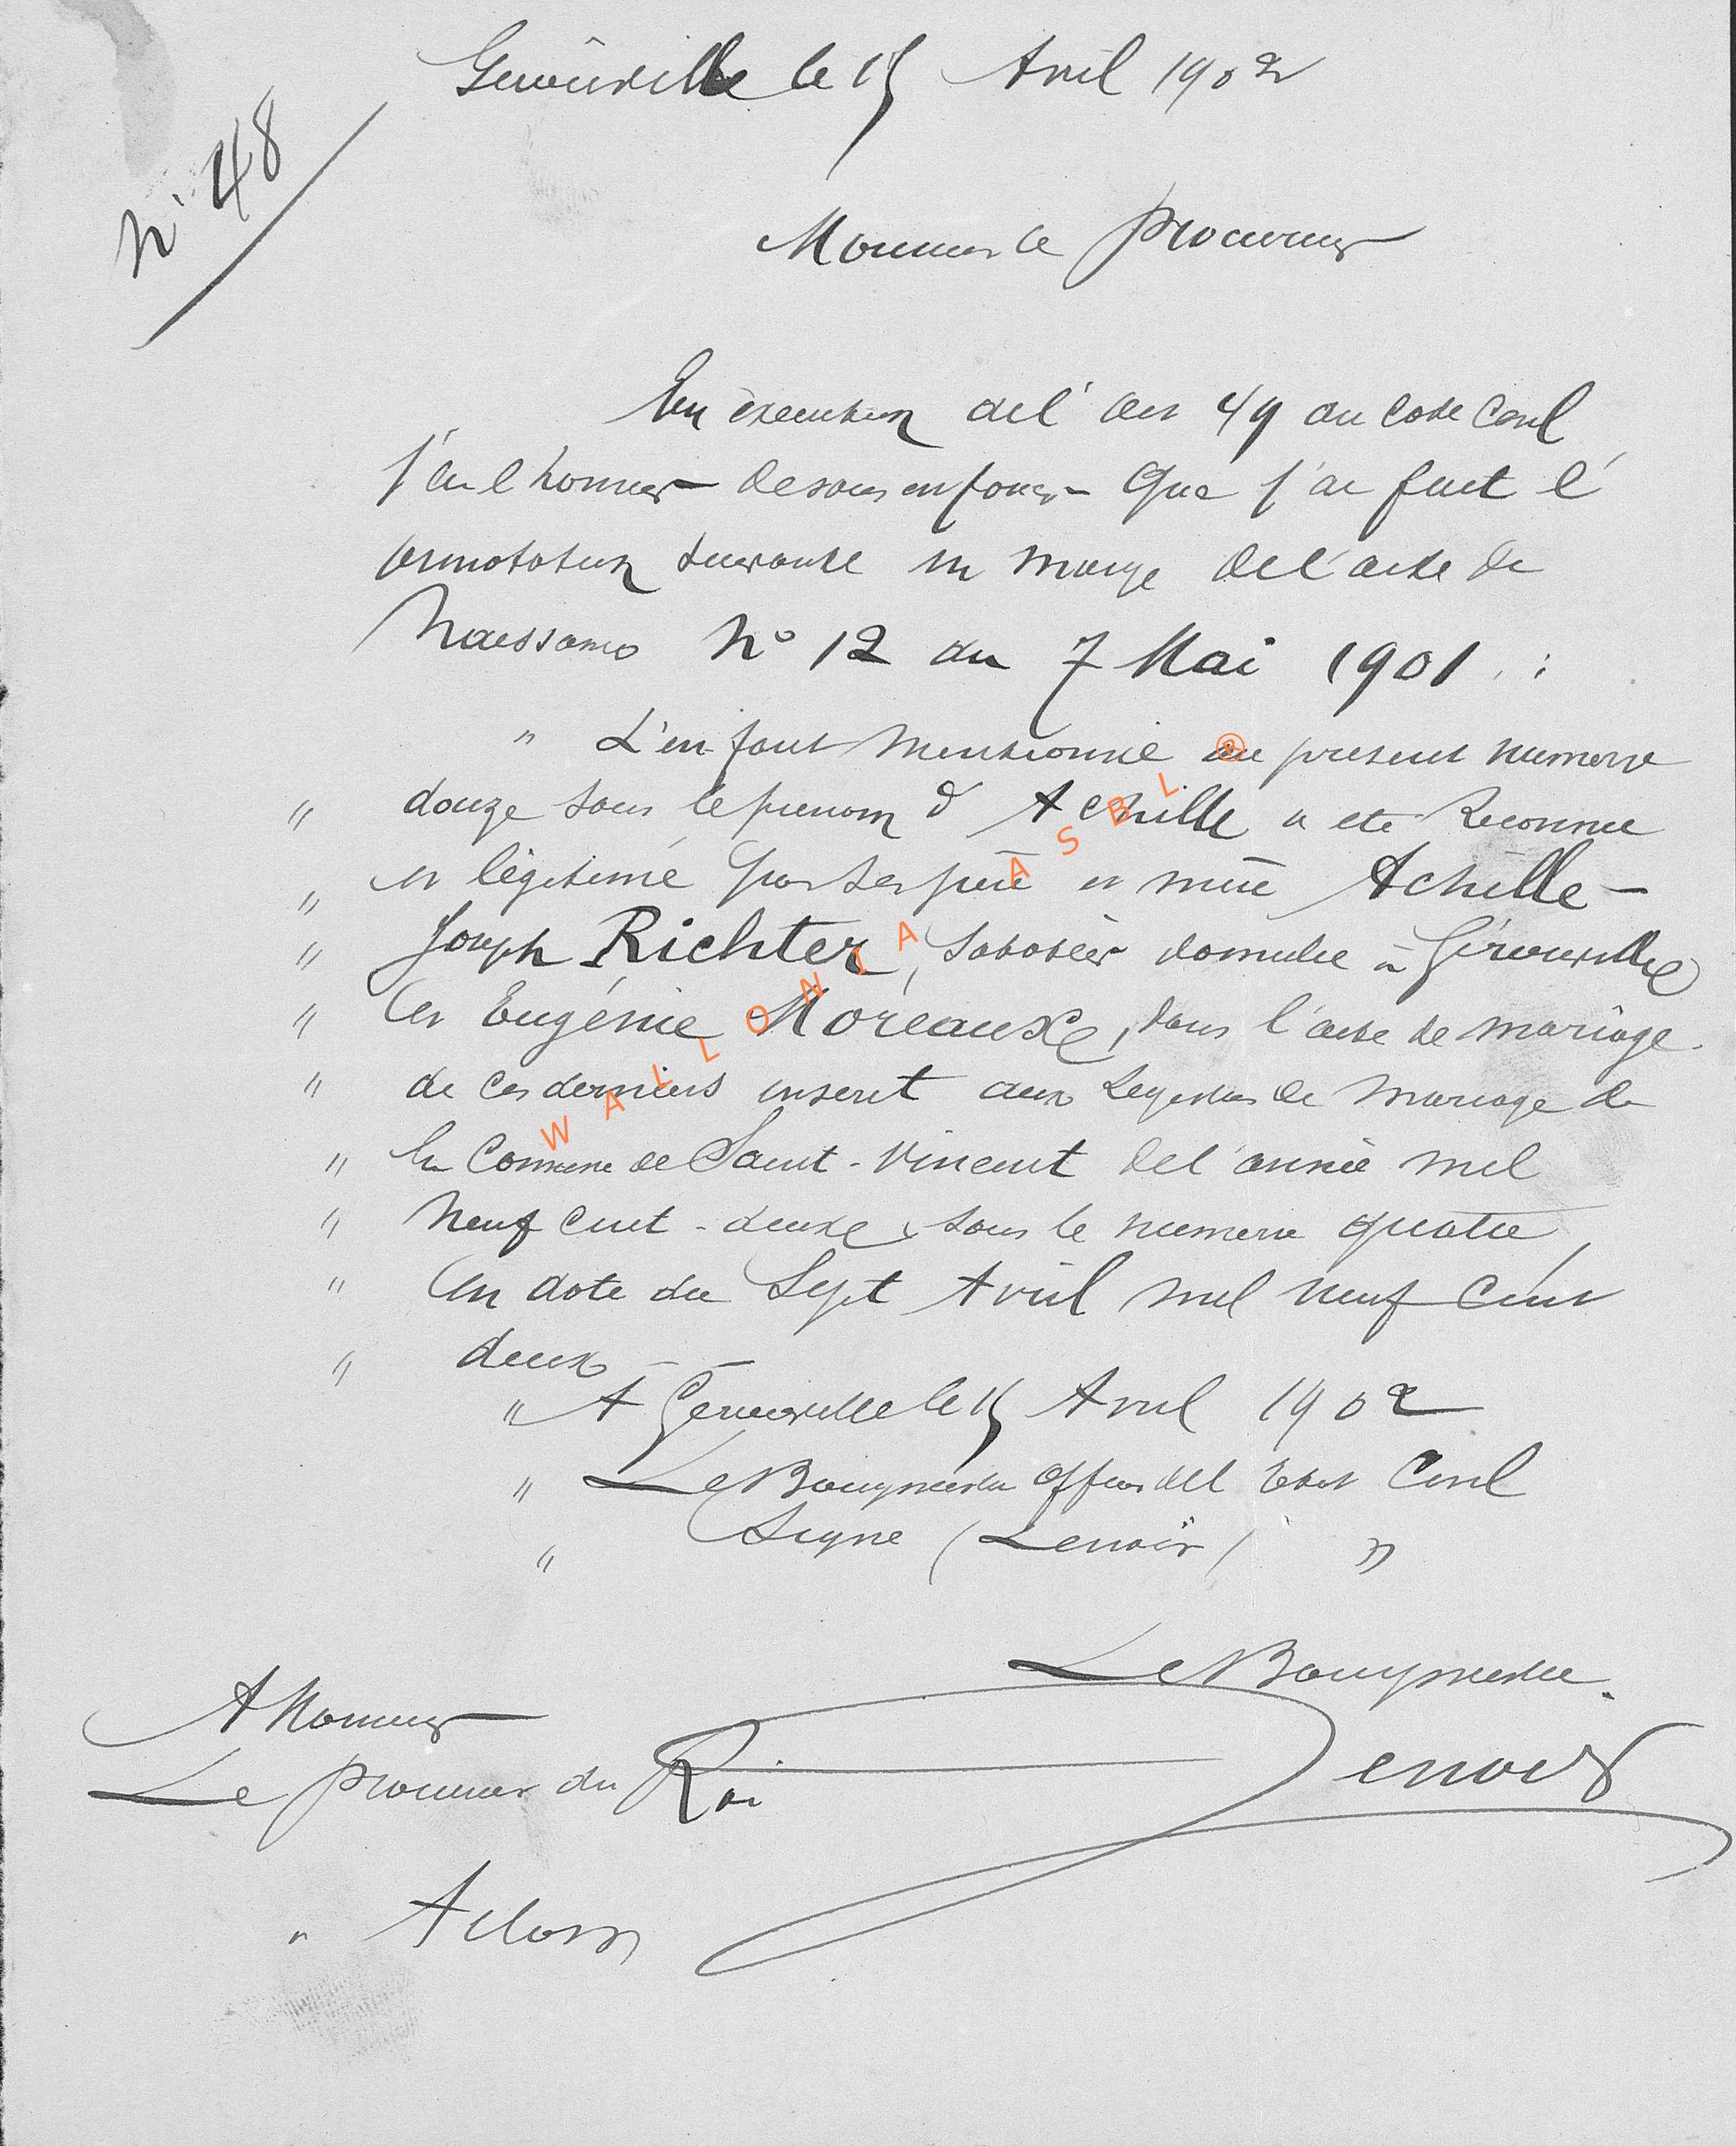 Gérouville le 15 Avril 1902
N° 48
Monsieur le Procureur
En execution de l'art 49 du Code Civil
j'ai l'honneur de vous informer que j'ai fait l'
annotation suivante en marge de l'acte de
Naissance N° 12 du 7 Mai 1901 :
" L'enfant mentionné au présent numero
" douze sous le prenom d'Achille a ete Reconnu
" et légitimé par ses père et mère Achille-
" Joseph Richter, Sabotier domicilié à Gérouville
" et Eugénie Moreaux, dans l'acte de mariage
" de ces derniers inscrit aux Registres de Mariage de
" la Commune de Saint-Vincent de l'année mil
" Neuf cent-deux, sous le numero quatre,
" en date du Sept Avril mil neuf cent
" deux
" A Gérouville le 15 Avril 1902
" Le Bourgmestre Officier de l'Etat Civil
" Signé (Lenoir) "
Le Bourgmestre.
A Monsieur
Le Procureur du Roi
Lenoir
" Arlon
WALLONIA ASBL ®